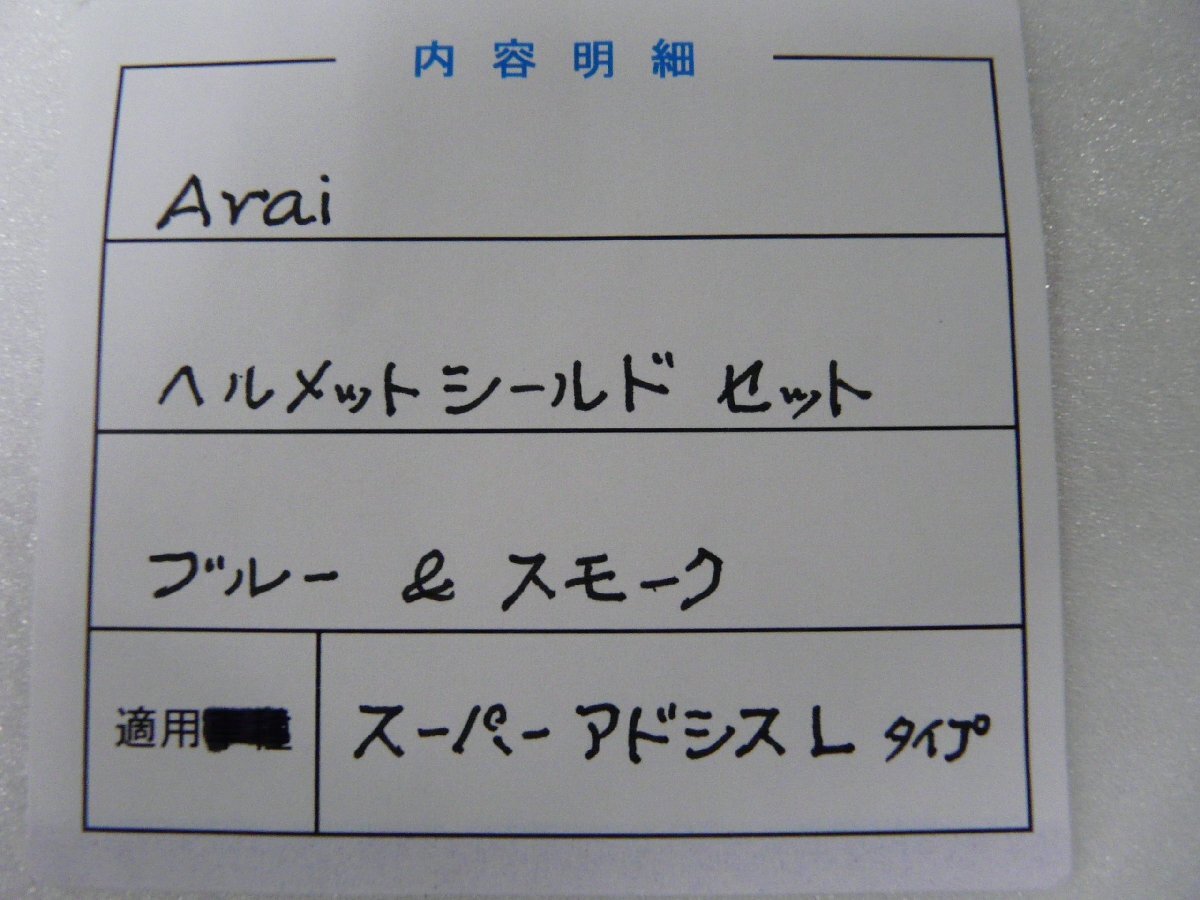 内容明細
Arai
ヘルメットシールド セット
ブルー & スモーク
適用
スーパーアドシス L タイプ